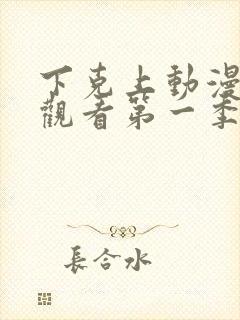 下克上動漫
觀看第一季
長合水